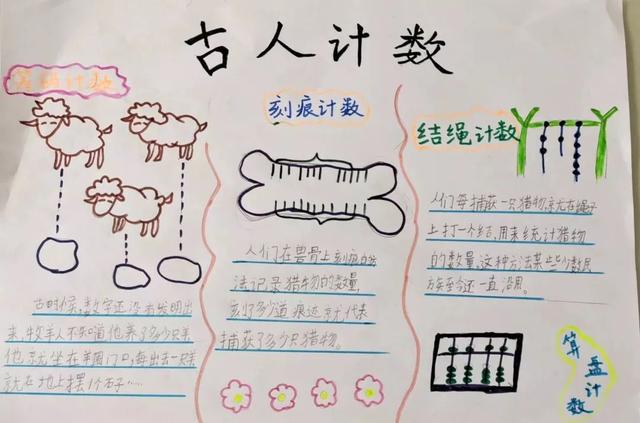 古人计数
计数
古时候,数字还没有发明出
来,牧羊人不知道他养了多少只羊
他就坐在羊圈门口,每出去一只羊
就在地上摆1个石子……
刻痕计数
人们在兽骨上刻痕的方
法记录猎物的数量,
刻了多少道 痕迹就代表
捕获了多少只猎物。
结绳计数
人们每捕获一只猎物,就在绳子
上打一个结,用来统计猎物
的数量,这种方法某些少数民
族至今还一直沿用。
算盘计数